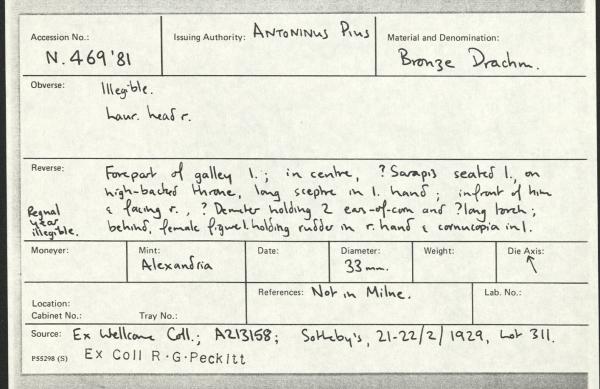 Accession No.: N.469'81
Issuing Authority: ANTONINUS PIUS
Material and Denomination: Bronze Drachm.
Obverse: Illegible.
Laur. head r.
Reverse: Forepart of galley l.; in centre, ?Sarapis seated l., on
high-backed throne, long sceptre in l. hand; in front of him
& facing r., ? Demeter holding 2 ears-of-corn and ?long torch;
behind, female figure l. holding rudder in r. hand & cornucopia in l.
Regnal
year
illegible.
Moneyer:
Mint: Alexandria
Date:
Diameter: 33 mm.
Weight:
Die Axis: ↖
Location:
Cabinet No.: Tray No.:
References: Not in Milne.
Lab. No.:
Source: Ex Wellcome Coll.; A213158; Sotheby's, 21-22/2/1929, Lot 311.
P55298 (S) Ex Coll R.G.Peckitt